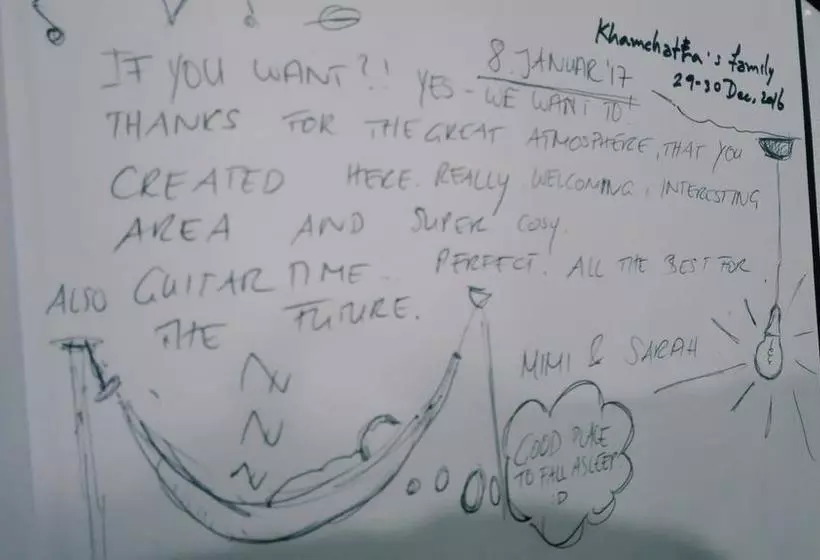 Khamchatka's family
29-30 Dec, 2016
8. JANUAR '17
IF YOU WANT?! YES - WE WANT TO!
THANKS FOR THE GREAT ATMOSPHERE, THAT YOU
CREATED HERE. REALLY WELCOMING, INTERESTING
AREA AND SUPER COSY.
ALSO GUITAR TIME.. PERFECT! ALL THE BEST FOR
THE FUTURE.
MIMI & SARAH
N
N
N
GOOD PLACE
TO FALL ASLEEP!
:D